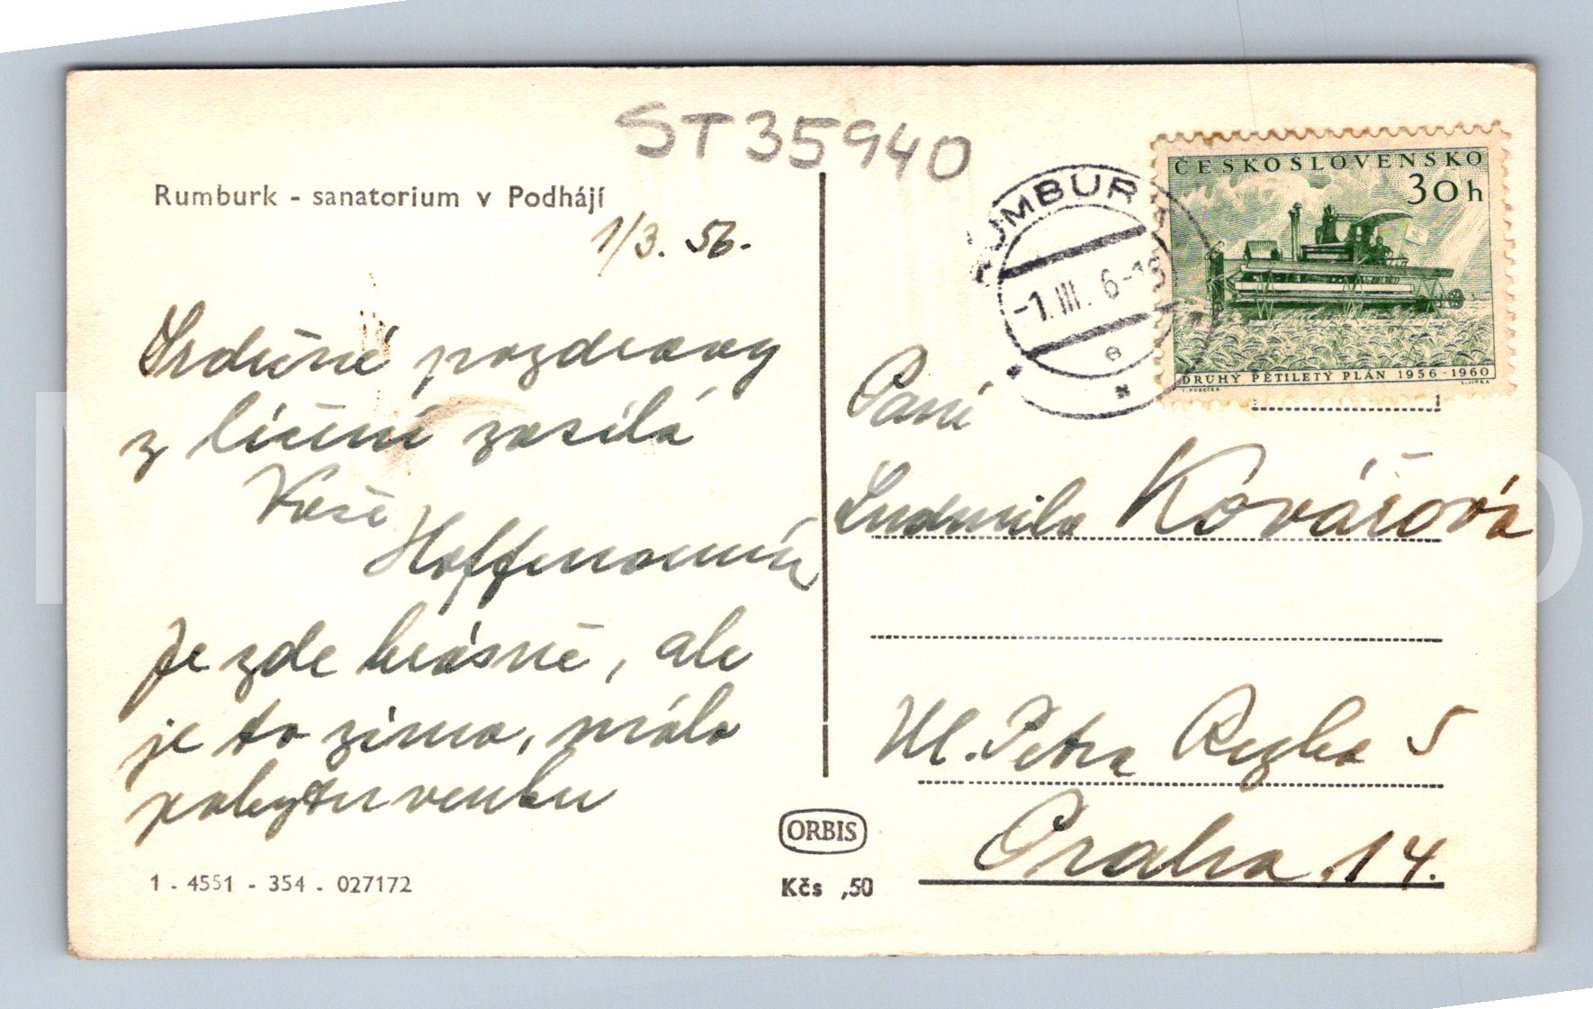 ST35940
Rumburk - sanatorium v Podhájí
1/3. 56.
Srdečné pozdravy
z léčení zasílá
Vaše
Hoffmannová
Je zde krásně, ale
je to zima, málo
pobytu venku
1 - 4551 - 354 - 027172
ORBIS
Kčs ,50
RUMBURK
-1.III. 6-18
e
ČESKOSLOVENSKO
30h
DRUHÝ PĚTILETÝ PLÁN 1956-1960
Paní
Ludmila Kovářová
Ul. Petra Rezka 5
Praha 14.